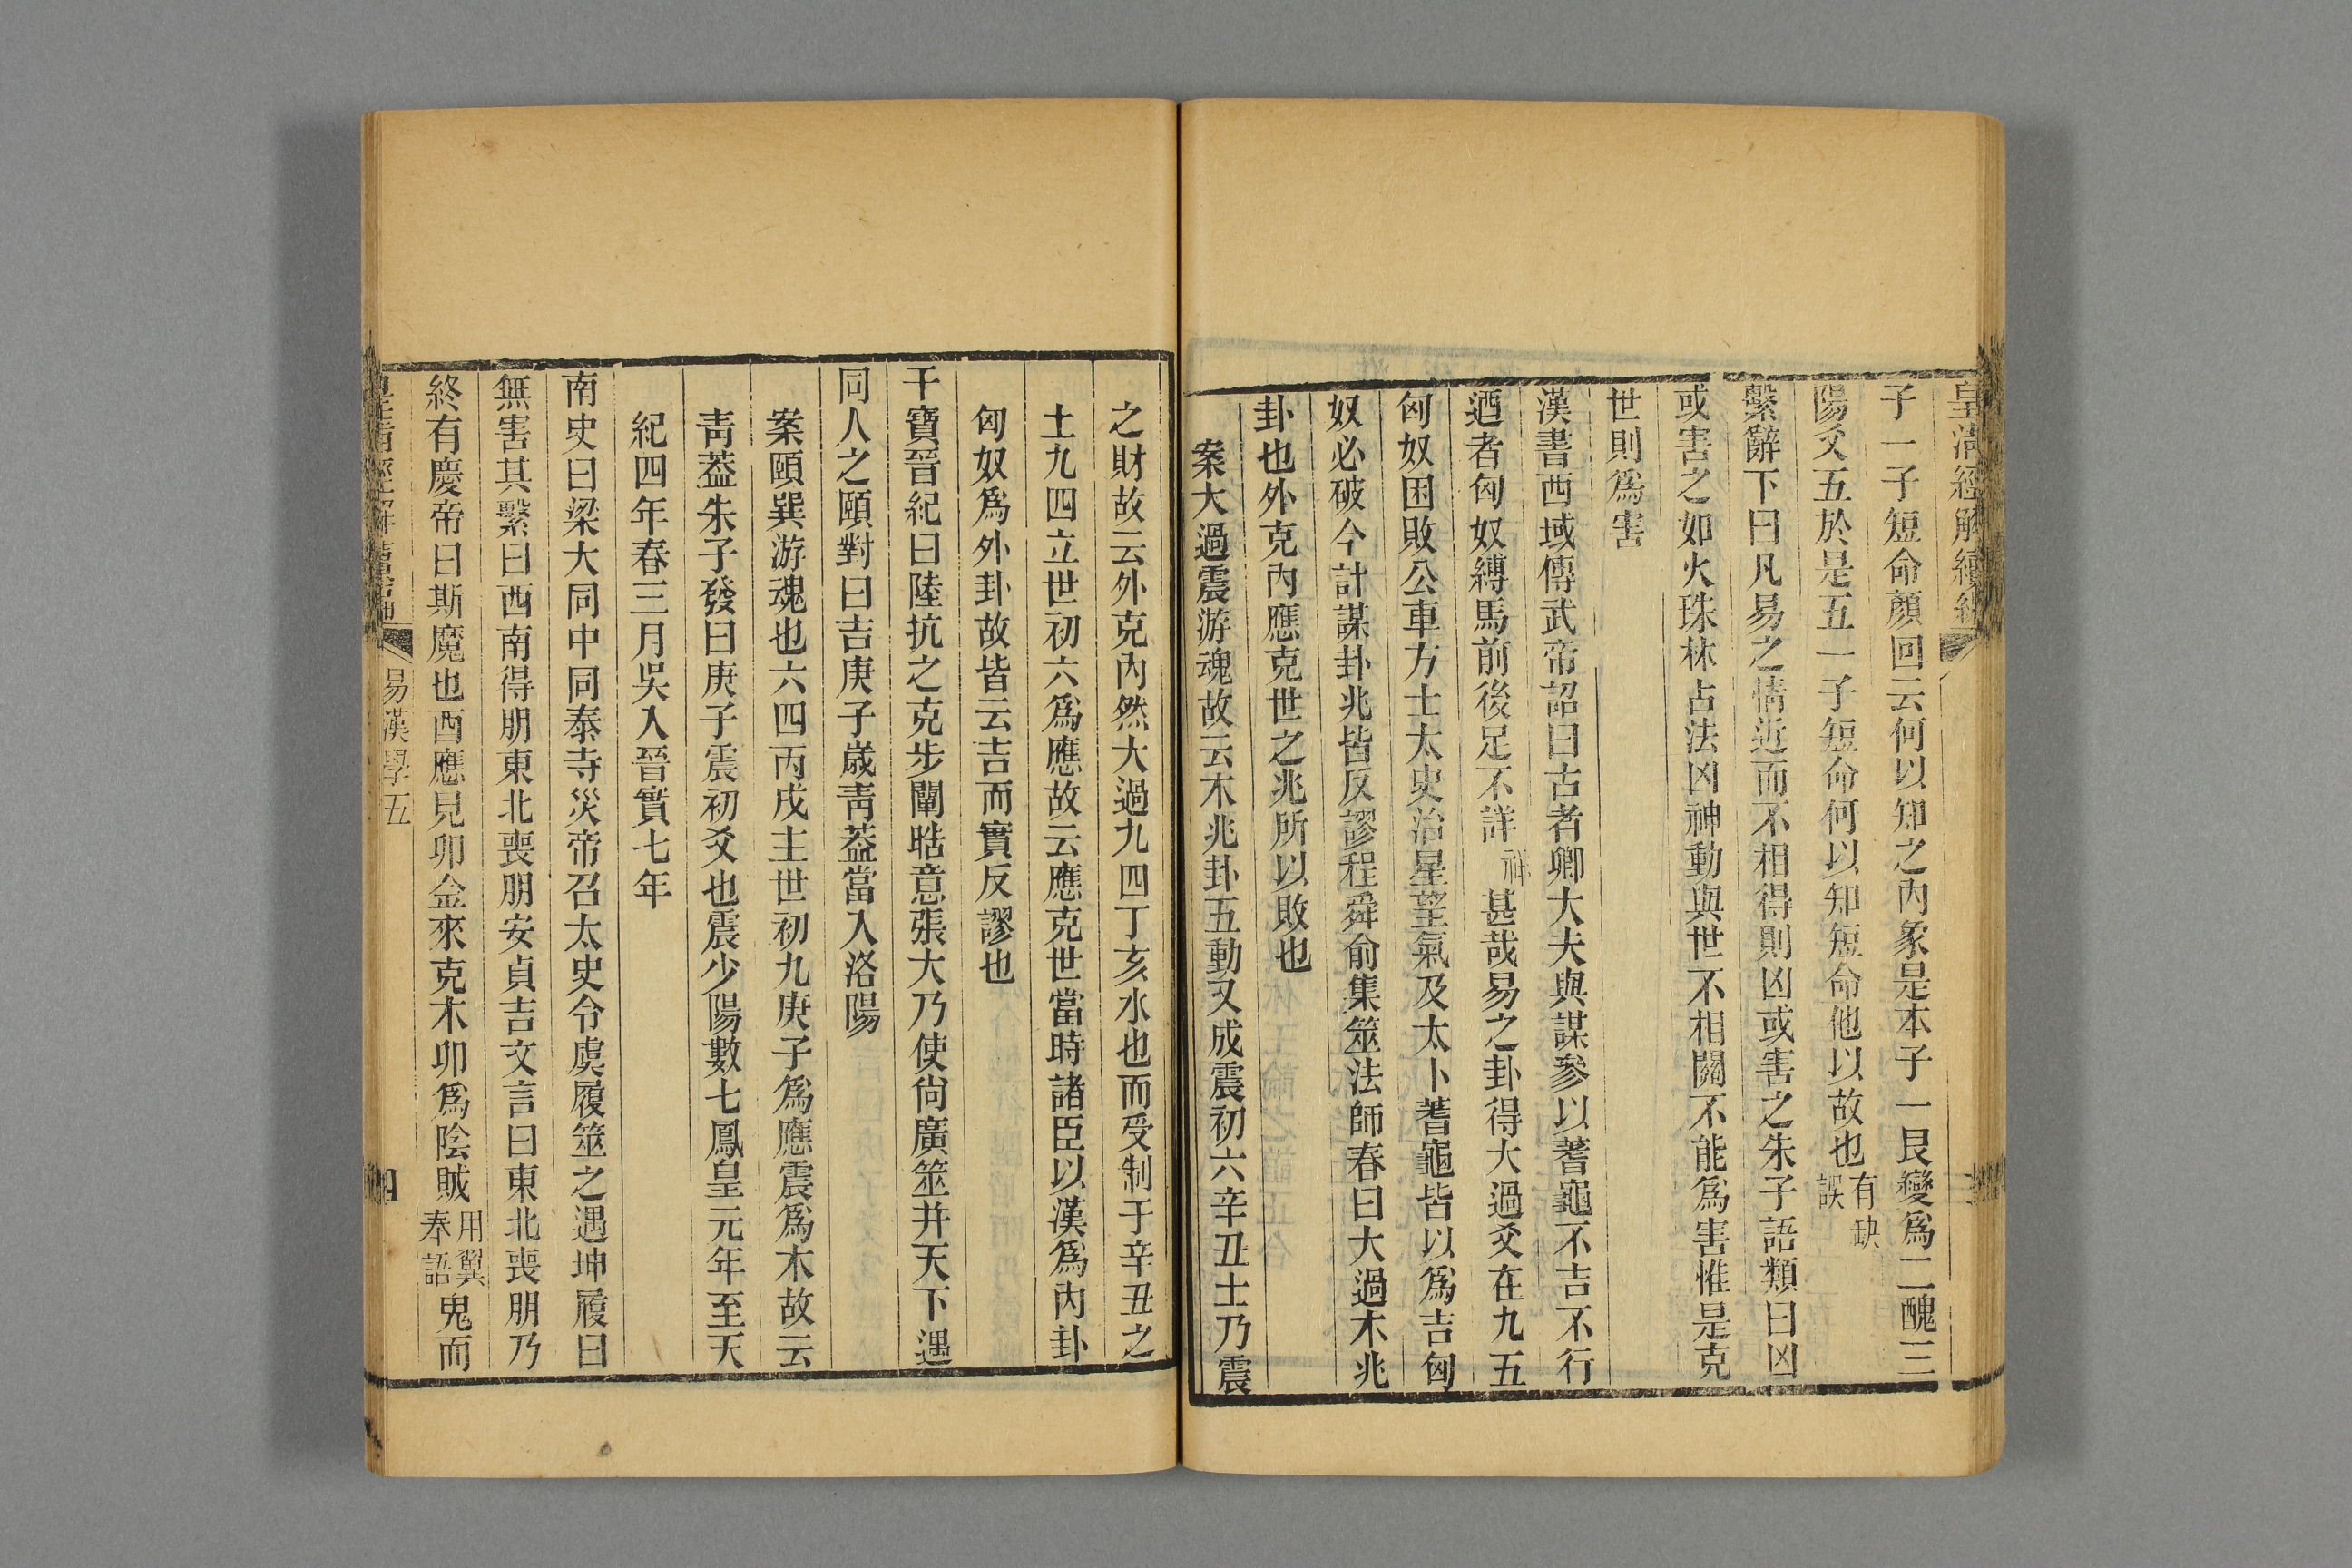 皇清經解續編
子一子短命顏回云何以知之內象是本子一艮變爲二醜三
陽爻五於是五一子短命何以知短命他以故也有缺誤
繫辭下曰凡易之情近而不相得則凶或害之朱子語類曰凶
或害之如火珠林占法凶神動與世不相關不能爲害惟是克
世則爲害
漢書西域傳武帝詔曰古者卿大夫與謀參以蓍龜不吉不行
迺者匈奴縛馬前後足不詳祥甚哉易之卦得大過爻在九五
匈奴困敗公車方士太史治星望氣及太卜蓍龜皆以爲吉匈
奴必破今計謀卦兆皆反謬程舜俞集筮法師春曰大過木兆
卦也外克內應克世之兆所以敗也
案大過震游魂故云木兆卦五動又成震初六辛丑土乃震
之財故云外克內然大過九四丁亥水也而受制于辛丑之
土九四立世初六爲應故云應克世當時諸臣以漢爲內卦
匈奴爲外卦故皆云吉而實反謬也
干寶晉紀曰陸抗之克步闡晧意張大乃使尙廣筮并天下遇
同人之頤對曰吉庚子歲靑葢當入洛陽
案頤巽游魂也六四丙戌主世初九庚子爲應震爲木故云
靑葢朱子發曰庚子震初爻也震少陽數七鳳皇元年至天
紀四年春三月吳入晉實七年
南史曰梁大同中同泰寺災帝召太史令虞履筮之遇坤履曰
無害其繫曰西南得朋東北喪朋安貞吉文言曰東北喪朋乃
終有慶帝曰斯魔也酉應見卯金來克木卯爲陰賊用翼奉語鬼而
皇清經解續編
易漢學五
四